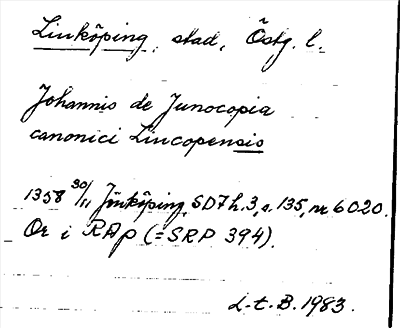 Linköping, stad, Östg. l.
Johannis de Junocopia
canonici Lincopensis
1358 30/11 Jönköping, SD7 h.3, s. 135, nr 6020.
Or i RAp (= SRP 394).
L-t. B. 1983.